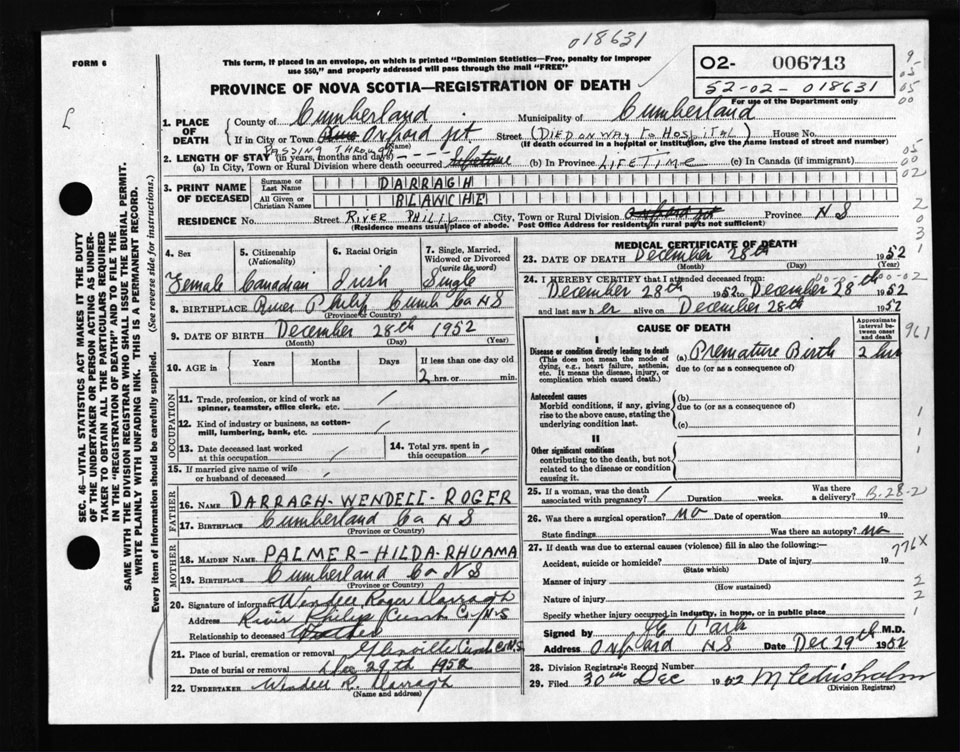 018631
FORM 6
This form, if placed in an envelope, on which is printed "Dominion Statistics—Free, penalty for improper
use $50," and properly addressed will pass through the mail "FREE"
02- 006713
52-02-018631
For use of the Department only
PROVINCE OF NOVA SCOTIA—REGISTRATION OF DEATH
1. PLACE OF DEATH
County of Cumberland Municipality of Cumberland
If in City or Town Oxford jct (Name) Street (DIED ON WAY TO HOSPITAL) House No.
(If death occurred in a hospital or institution, give the name instead of street and number)
PASSING THROUGH
2. LENGTH OF STAY (in years, months and days)
(a) In City, Town or Rural Division where death occurred lifetime (b) In Province LIFETIME (c) In Canada (if immigrant)
3. PRINT NAME OF DECEASED
Surname or Last Name DARRAGH
All Given or Christian Names BLAWCHE
RESIDENCE No. Street RIVER PHILIP City, Town or Rural Division Oxford jct Province NS
(Residence means usual place of abode. Post Office Address for residents in rural parts not sufficient)
4. Sex Female
5. Citizenship (Nationality) Canadian
6. Racial Origin Irish
7. Single, Married, Widowed or Divorced (write the word) Single
8. BIRTHPLACE River Philip Cumb Co NS
(Province or Country)
9. DATE OF BIRTH December 28th 1952
(Month) (Day) (Year)
10. AGE in Years Months Days If less than one day old
2 hrs. or min.
OCCUPATION
11. Trade, profession, or kind of work as
spinner, teamster, office clerk, etc. /
12. Kind of industry or business, as cotton-
mill, lumbering, bank, etc. /
13. Date deceased last worked
at this occupation /
14. Total yrs. spent in
this occupation /
15. If married give name of wife
or husband of deceased /
FATHER
16. NAME DARRAGH-WENDELL-ROGER
17. BIRTHPLACE Cumberland Co NS
(Province or Country)
MOTHER
18. MAIDEN NAME PALMER-HILDA-RHUAMA
19. BIRTHPLACE Cumberland Co NS
(Province or Country)
20. Signature of informant Wendell Roger Darragh
Address River Philip Cumb Co NS
Relationship to deceased Father
21. Place of burial, cremation or removal Glenville Cumb Co N.S.
Date of burial or removal Dec 29th 1952
22. UNDERTAKER Wendell R. Darragh
(Name and address)
MEDICAL CERTIFICATE OF DEATH
23. DATE OF DEATH December 28th 1952
(Month) (Day)
24. I HEREBY CERTIFY that I attended deceased from:
December 28th 1952 to December 28th 1952
and last saw her alive on December 28th 1952
CAUSE OF DEATH
Approximate interval between onset and death
I
Disease or condition directly leading to death (a) Premature Birth 2 hrs
(This does not mean the mode of
dying, e.g., heart failure, asthenia,
etc. It means the disease, injury, or
complication which caused death.)
due to (or as a consequence of)
Antecedent causes (b)
Morbid conditions, if any, giving
rise to the above cause, stating the
underlying condition last.
due to (or as a consequence of)
(c)
II
Other significant conditions
contributing to the death, but not
related to the disease or condition
causing it.
25. If a woman, was the death
associated with pregnancy? / Duration weeks. Was there
a delivery? B-28-2
26. Was there a surgical operation? no Date of operation 19
State findings Was there an autopsy? no
27. If death was due to external causes (violence) fill in also the following:—
776X
Accident, suicide or homicide? Date of injury 19
(State which)
Manner of injury
(How sustained)
Nature of injury
Specify whether injury occurred in industry, in home, or in public place
Signed by Park M.D.
Address Oxford NS Date Dec 29th 1952
28. Division Registrar's Record Number
29. Filed 30th Dec 1952 M Chisholm
(Division Registrar)
SEC. 46—VITAL STATISTICS ACT MAKES IT THE DUTY
OF THE UNDERTAKER OR PERSON ACTING AS UNDER-
TAKER TO OBTAIN ALL THE PARTICULARS REQUIRED
IN THE "REGISTRATION OF DEATH" AND TO FILE THE
SAME WITH THE DIVISION REGISTRAR WHO SHALL ISSUE THE BURIAL PERMIT.
WRITE PLAINLY WITH UNFADING INK. THIS IS A PERMANENT RECORD.
Every item of information should be carefully supplied. (See reverse side for instructions.)
9-
05
05
00
05
00
02
2
0
3
1
00-02
961
1
1
1
2
2
1